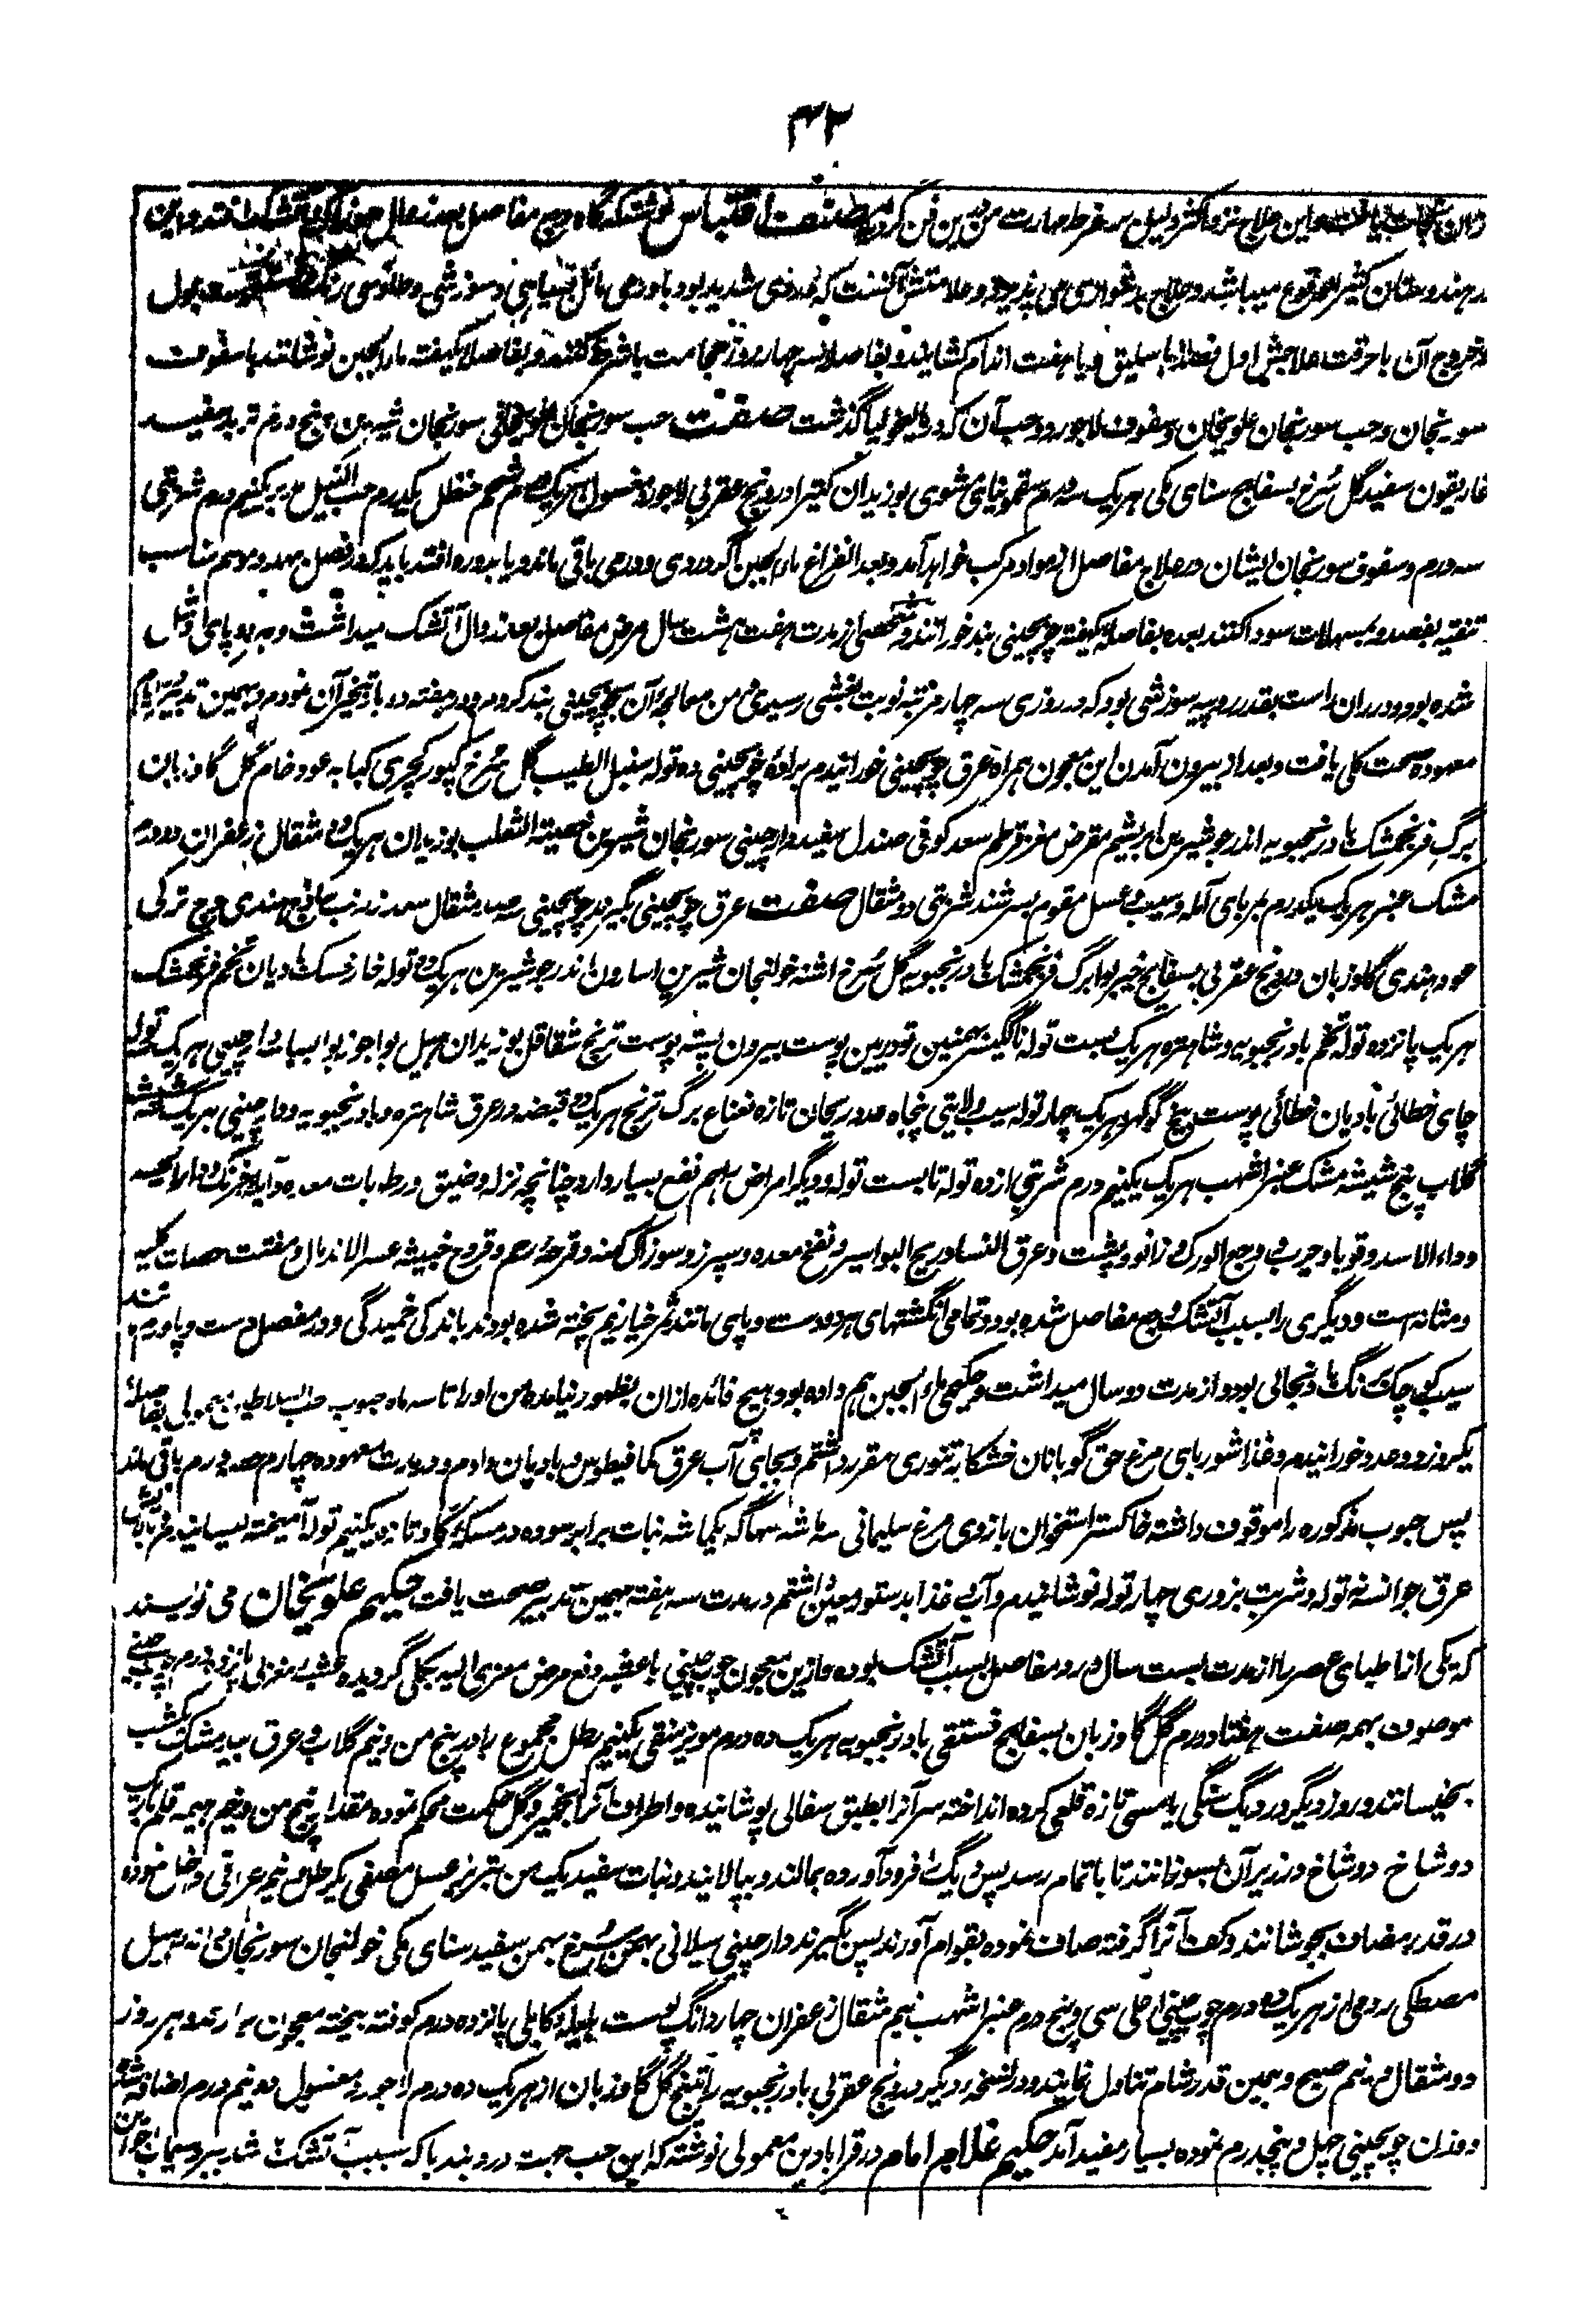 ۴۲
ازان نجات یافت و این علاج نزد اکثر دلیل بر فرط مهارت من درین فن گردید مصنف اقتباس نوشته که گاه وجع مفاصل بعد زوال آتشک افتد و این
در هندوستان کثیر الوقوع میباشد و علاج بدشواری می پذیرد و علامتش آنست که درد شدید بود با ورمی مائل بسیاهی و سوزشی و طاؤسی رنگ بول
و خروج آن با حرقت علاجش اول فصد باسلیق و یا هفت اندام کشایند و بفاصله سه چهار روز حجامت با شرط کنند و بفاصله یکهفته ماء الجبن نوشانند با سفوف
سورنجان و حب سورنجان علویخان و سفوف لاجورد و حب آن که در مالیخولیا گذشت صفت حب سورنجان علویخانی سورنجان شیرین پنج درم تربد سفید
غاریقون سفید گل سرخ بسفایج سنای مکی هریک سه درم سقمونیای مشوی بوزیدان کتیرا درونج عقربی لاجورد مغسول هریک درم شحم حنظل یکدرم حب النیل مدبر یکنیم درم شربتی
سه درم و سفوف سورنجان ایشان در علاج مفاصل از مواد مرکب خواهد آمد و بعد انفراغ ماء الجبن اگر دردی و ورمی باقی ماند و یا بدوره افتد باید که در فصل بهار و موسم مناسب
تنقیه بفصد و بمسهلات سودا کنند بعده بفاصله یکهفته چوبچینی بند خورانند و شخصی از مدت هفت هشت سال مرض مفاصل بعد زوال آتشک میداشت و بهر دو پای او شل
شده بود و در ران راست بقدر روپیه سوزشی بود که در روزی سه چار مرتبه نوبت بغشی رسیدی من معالجه آن بچوبچینی بند کردم و در هفته دو بار تبخیر آن نمودم و بهمین تدبیر در ایام
معهوده صحت کلی یافت و بعد از بیرون آمدن این معجون همراه عرق چوبچینی خورانیدم براده چوبچینی ده توله سنبل الطیب گل سرخ کپور کچری کبابه عود خام گل گاوزبان
برگ فرنجمشک بادرنجبویه اندر جو شیرین ابریشم مقرض مغز قرطم سعد کوفی صندل سفید دارچینی سورنجان شیرین خصیة الثعلب بوزیدان هریک دو مثقال زعفران دو درم
مشک عنبر هریک یکدرم مربای آمله و سیب و عسل مقوم بسرشند شربتی دو مثقال صفت عرق چوبچینی بگیرند چوبچینی صد مثقال سعد زرنب ساذج هندی وج ترکی
عود هندی گاوزبان درونج عقربی بسفایج خیربوا برگ فرنجمشک بادرنجبویه گل سرخ اشنه خولنجان شیرین اسارون اندر جو شیرین هریک ده توله خارخسک بادیان تخم فرنجمشک
هریک پانزده توله تخم بادرنجبویه و شاهتره هریک بست توله ناگیسر بهمنین تودریین پوست بیرون پسته پوست ترنج شقاقل بوزیدان هیل بوا جوزبوا بسباسه دارچینی هریک توله
چای خطائی بادیان خطائی پوست بیخ گوکهرو هریک چار توله سیب ولایتی پنجاه عدد ریحان تازه نعناع برگ ترنج هریک دو قبضه در عرق شاهتره و بادرنجبویه و دارچینی هریک شیشه
گلاب پنج شیشه مشک عنبر اشهب هریک یکنیم درم شربتی از ده توله تا بست توله و دیگر امراض را هم نفع بسیار دارد چنانچه نزله و ضیق و رطوبات معده و آبله فرنگ و داء الحیه
و داء الاسد و قوبا و جرب و وجع الورک و زانو و پشت و عرق النسا و ریح البواسیر و نفخ معده و سپرز و سوزاک کهنه و قرحه رحم و قروح خبیثه عسر الاندمال و مفتت حصات کلیه
و مثانه است و دیگری را بسبب آتشک وجع مفاصل شده بود و تمامی انگشتهای هر دو دست و پای مانند ثمر خیار نیم پخته شده بودند باندکی خمیدگی و در مفصل دست و پا ورم مانند
سیب کوچک رنگ بادنجانی بود و از مدت دو سال میداشت و حکیمی ماء الجبن هم داده بود و هیچ فائده ازان بظهور نیامده من او را تا سه ماه حبوب حب السلاطین معمولی بفاصله
یکروز دو عدد خورانیدم و غذا شوربای مرغ حق گو با نان خشکار تنوری مقرر داشتم و بجای آب عرق کمافیطوس و بادیان دادم و در مدت معهوده چهارم حصه ورم باقی ماند
پس حبوب مذکوره را موقوف داشته خاکستر استخوان بازوی مرغ سلیمانی سه ماشه سهاگه یکماشه نبات برابر سوده در مسکه گاو تازه یکنیم توله آمیخته لیسانیدم و بالایش
عرق جوانسه نه توله و شربت بزوری چهار توله نوشانیدم و آب و غذا بدستور معین داشتم در مدت سه هفته بهمین تدبیر صحت یافت حکیم علویخان می نویسند
که یکی از اطبای عصر ما از مدت بست سال درد مفاصل بسبب آتشک بوده و ازین معجون چوبچینی با عشبه دفع مرض معزی الیه بکلی گردیده عشبه مغربی پانزده درم چوبچینی
موصوف بهمه صفت هفتاد درم گل گاوزبان بسفایج فستقی بادرنجبویه هریک ده درم مویز منقی یکنیم رطل مجموع را در پنج من و نیم گلاب و عرق بیدمشک یکشب
بخیسانند و روز دیگر در دیگ سنگی یا مسی تازه قلعی کرده انداخته سر آنرا بطبق سفالی پوشانیده و اطراف آنرا بخمیر و گل حکمت محکم نموده مقدار پنج من و نیم هیمه قلم باریک
دو شاخ دو شاخ در زیر آن بسوزانند تا باتمام رسد پس دیگ را فرود آورده بمالند و بپالایند و نبات سفید یک من تبریز عسل مصفی یکرطل و نیم عراقی داخل نموده
در قدر مضاف بجوشانند و کف آنرا گرفته صاف نموده بقوام آورند پس بگیرند دارچینی سیلانی بهمن سرخ بهمن سفید سنای مکی خولنجان سورنجان دانه هیل
مصطکی رومی از هریک ده درم چوبچینی اصلی سی و پنج درم عنبر اشهب نیم مثقال زعفران چهار دانگ پوست هلیله کابلی پانزده درم کوفته بیخته معجون سازند و هر روز
دو مثقال و نیم صبح و بهمین قدر شام تناول نمایند و در نسخه دیگر درونج عقربی بادرنجبویه راتینج گل گاوزبان از هریک ده درم لاجورد مغسول دو نیم درم اضافه شده
و وزن چوبچینی چهل و پنجدرم نموده بسیار مفید آمد حکیم غلام امام در قرابادین معمولی نوشته که این حب جهت درد بندها که بسبب آتشک شد